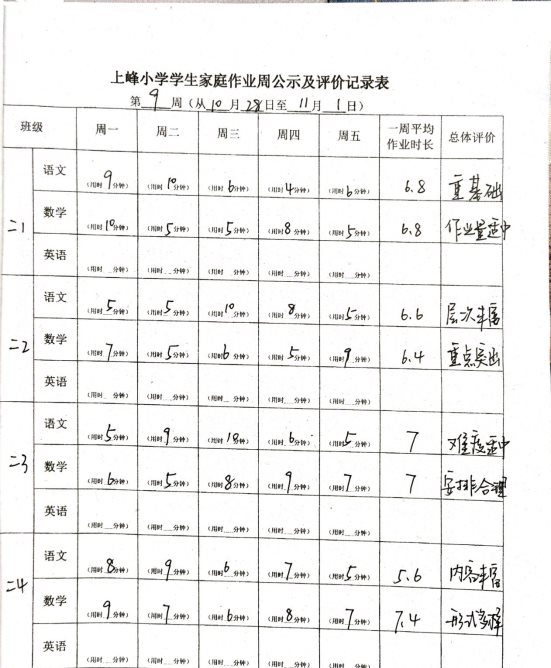 上峰小学学生家庭作业周公示及评价记录表
第 9 周（从 10 月 28 日至 11 月 1 日）
班级 周一 周二 周三 周四 周五 一周平均作业时长 总体评价
二1 语文 9（用时 分钟） 10（用时 分钟） 6（用时 分钟） 4（用时 分钟） 6（用时 分钟） 6.8 重基础
数学 10（用时 分钟） 5（用时 分钟） 5（用时 分钟） 8（用时 分钟） 5（用时 分钟） 6.8 作业量适中
英语 （用时 分钟） （用时 分钟） （用时 分钟） （用时 分钟） （用时 分钟）
二2 语文 5（用时 分钟） 5（用时 分钟） 10（用时 分钟） 8（用时 分钟） 5（用时 分钟） 6.6 层次丰富
数学 7（用时 分钟） 5（用时 分钟） 6（用时 分钟） 5（用时 分钟） 9（用时 分钟） 6.4 重点突出
英语 （用时 分钟） （用时 分钟） （用时 分钟） （用时 分钟） （用时 分钟）
二3 语文 5（用时 分钟） 9（用时 分钟） 10（用时 分钟） 6（用时 分钟） 5（用时 分钟） 7 难度适中
数学 6（用时 分钟） 5（用时 分钟） 8（用时 分钟） 9（用时 分钟） 7（用时 分钟） 7 安排合理
英语 （用时 分钟） （用时 分钟） （用时 分钟） （用时 分钟） （用时 分钟）
二4 语文 8（用时 分钟） 9（用时 分钟） 6（用时 分钟） 7（用时 分钟） 5（用时 分钟） 5.6 内容丰富
数学 9（用时 分钟） 7（用时 分钟） 6（用时 分钟） 8（用时 分钟） 7（用时 分钟） 7.4 形式多样
英语 （用时 分钟） （用时 分钟） （用时 分钟） （用时 分钟） （用时 分钟）